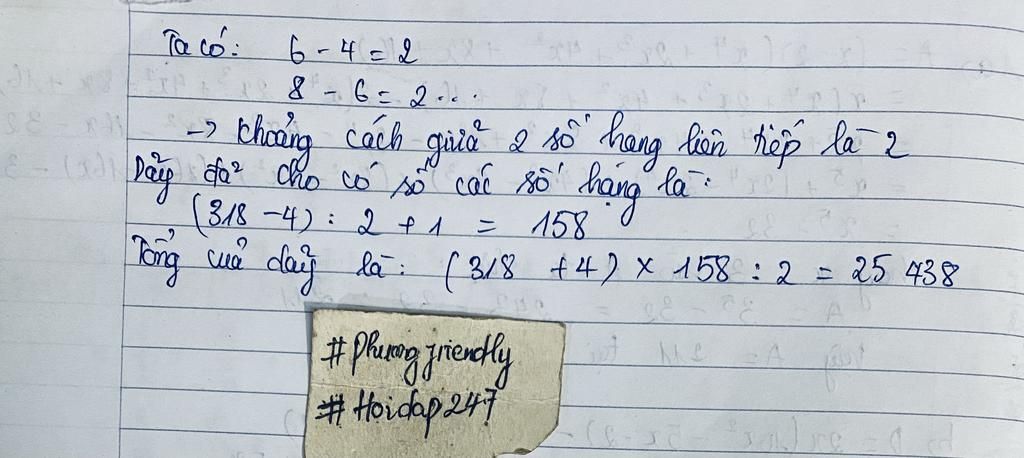 Ta có: 6 - 4 = 2
8 - 6 = 2...
→ khoảng cách giữa 2 số hạng liên tiếp là 2
Dãy đã cho có số các số hạng là:
(318 - 4) : 2 + 1 = 158
Tổng của dãy là: (318 + 4) × 158 : 2 = 25 438
#Phuongfriendly
#Hoidap247